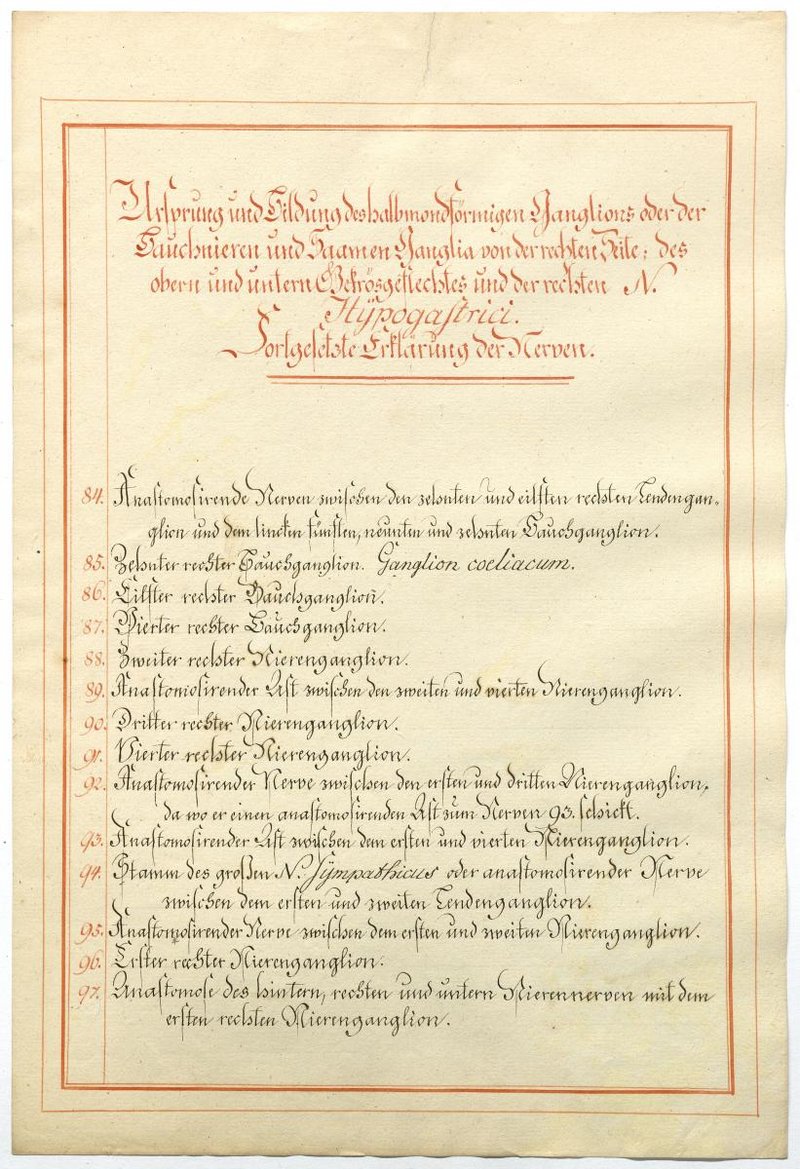 Ursprung und Bildung des halbmondförmigen Ganglions oder der
Bauchnieren und Saamen Ganglia von der rechten Seite: des
obern und untern Gekrösgeflechtes und der rechten N.
Hÿpogastrici.
Fortgesetzte Erklärung der Nerven.
84. Anastomosirende Nerven zwischen den zehnten und eilften rechten Lendengan-
glion und dem lincken fünften, neunten und zehnten Bauchganglion.
85. Zehnter rechter Bauchganglion. Ganglion coeliacum.
86. Eilfter rechter Bauchganglion.
87. Vierter rechter Bauchganglion.
88. Zweiter rechter Nierenganglion.
89. Anastomosirender Ast zwischen den zweiten und vierten Nierenganglion.
90. Dritter rechter Nierenganglion.
91. Vierter rechter Nierenganglion.
92. Anastomosirender Nerve zwischen den ersten und dritten Nierenganglion,
da wo er einen anastomosirenden Ast zum Nerven 93. schickt.
93. Anastomosirender Ast zwischen dem ersten und vierten Nierenganglion.
94. Stamm des großen N. Sÿmpathicus oder anastomosirender Nerve
zwischen dem ersten und zweiten Lendenganglion.
95. Anastomosirender Nerve zwischen dem ersten und zweiten Nierenganglion.
96. Erster rechter Nierenganglion.
97. Anastomose des hintern, rechten und untern Nierennerven mit dem
ersten rechten Nierenganglion.